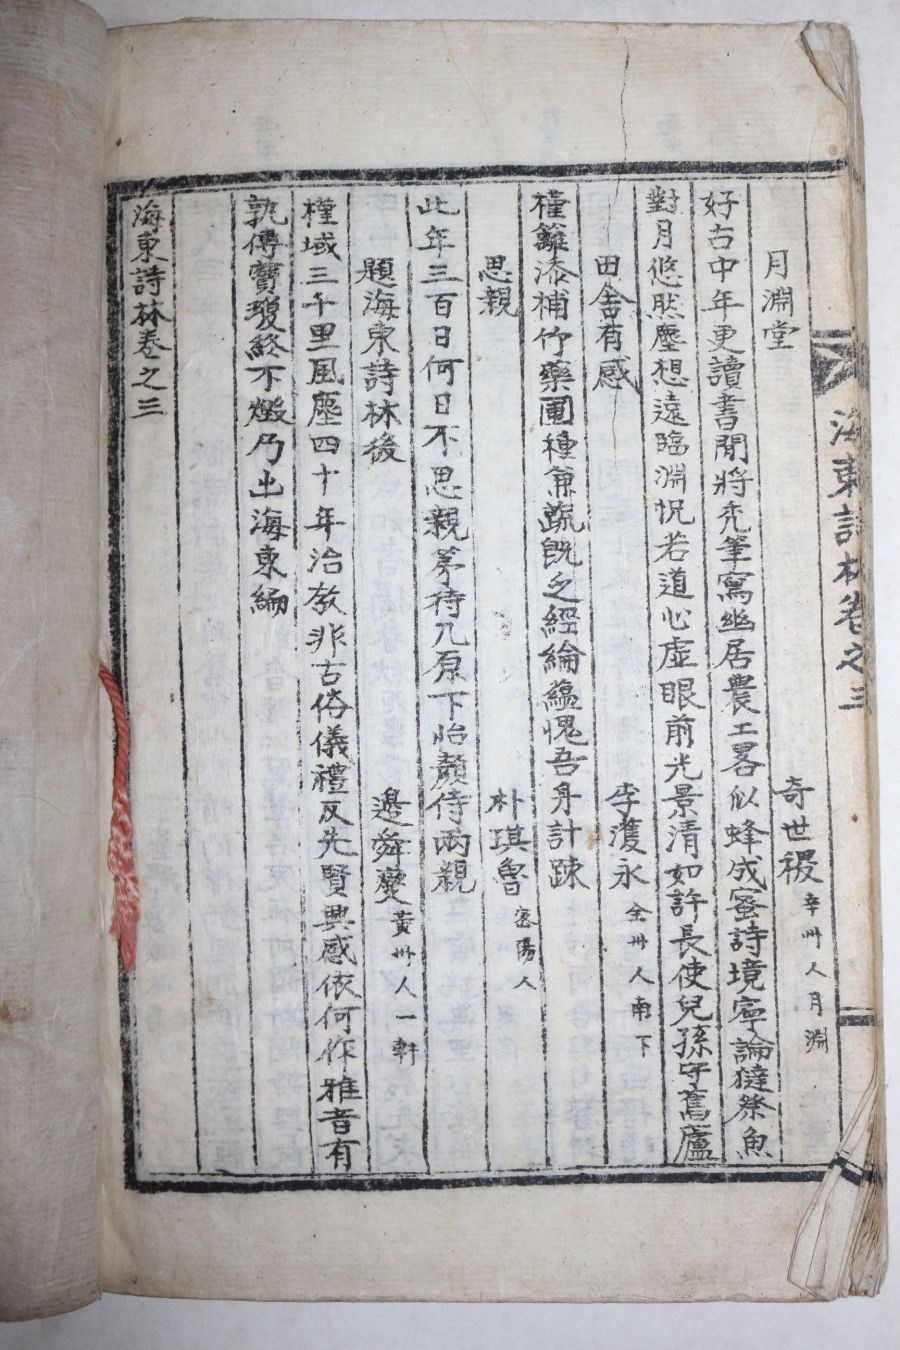 海東詩林卷之三
月淵堂 奇世稷 幸州人月淵
好古中年更讀書閒將禿筆寫幽居農工畧似蜂成蜜詩境寧論獺祭魚
對月悠然塵想遠臨淵怳若道心虛眼前光景清如許長使兒孫守舊廬
田舍有感 李濩永 全州人南下
槿籬漆補竹藥圃種兼蔬旣乏經綸蘊愧吾身計疎
思親 朴琪魯 密陽人
此年三百日何日不思親若待九原下怡顏侍兩親
題海東詩林後 邊舜燮 黃州人一軒
槿域三千里風塵四十年治敎非古俗儀禮反先賢興感依何作雅音有
孰傳寶瓊終不燬乃出海東編
海東詩林卷之三